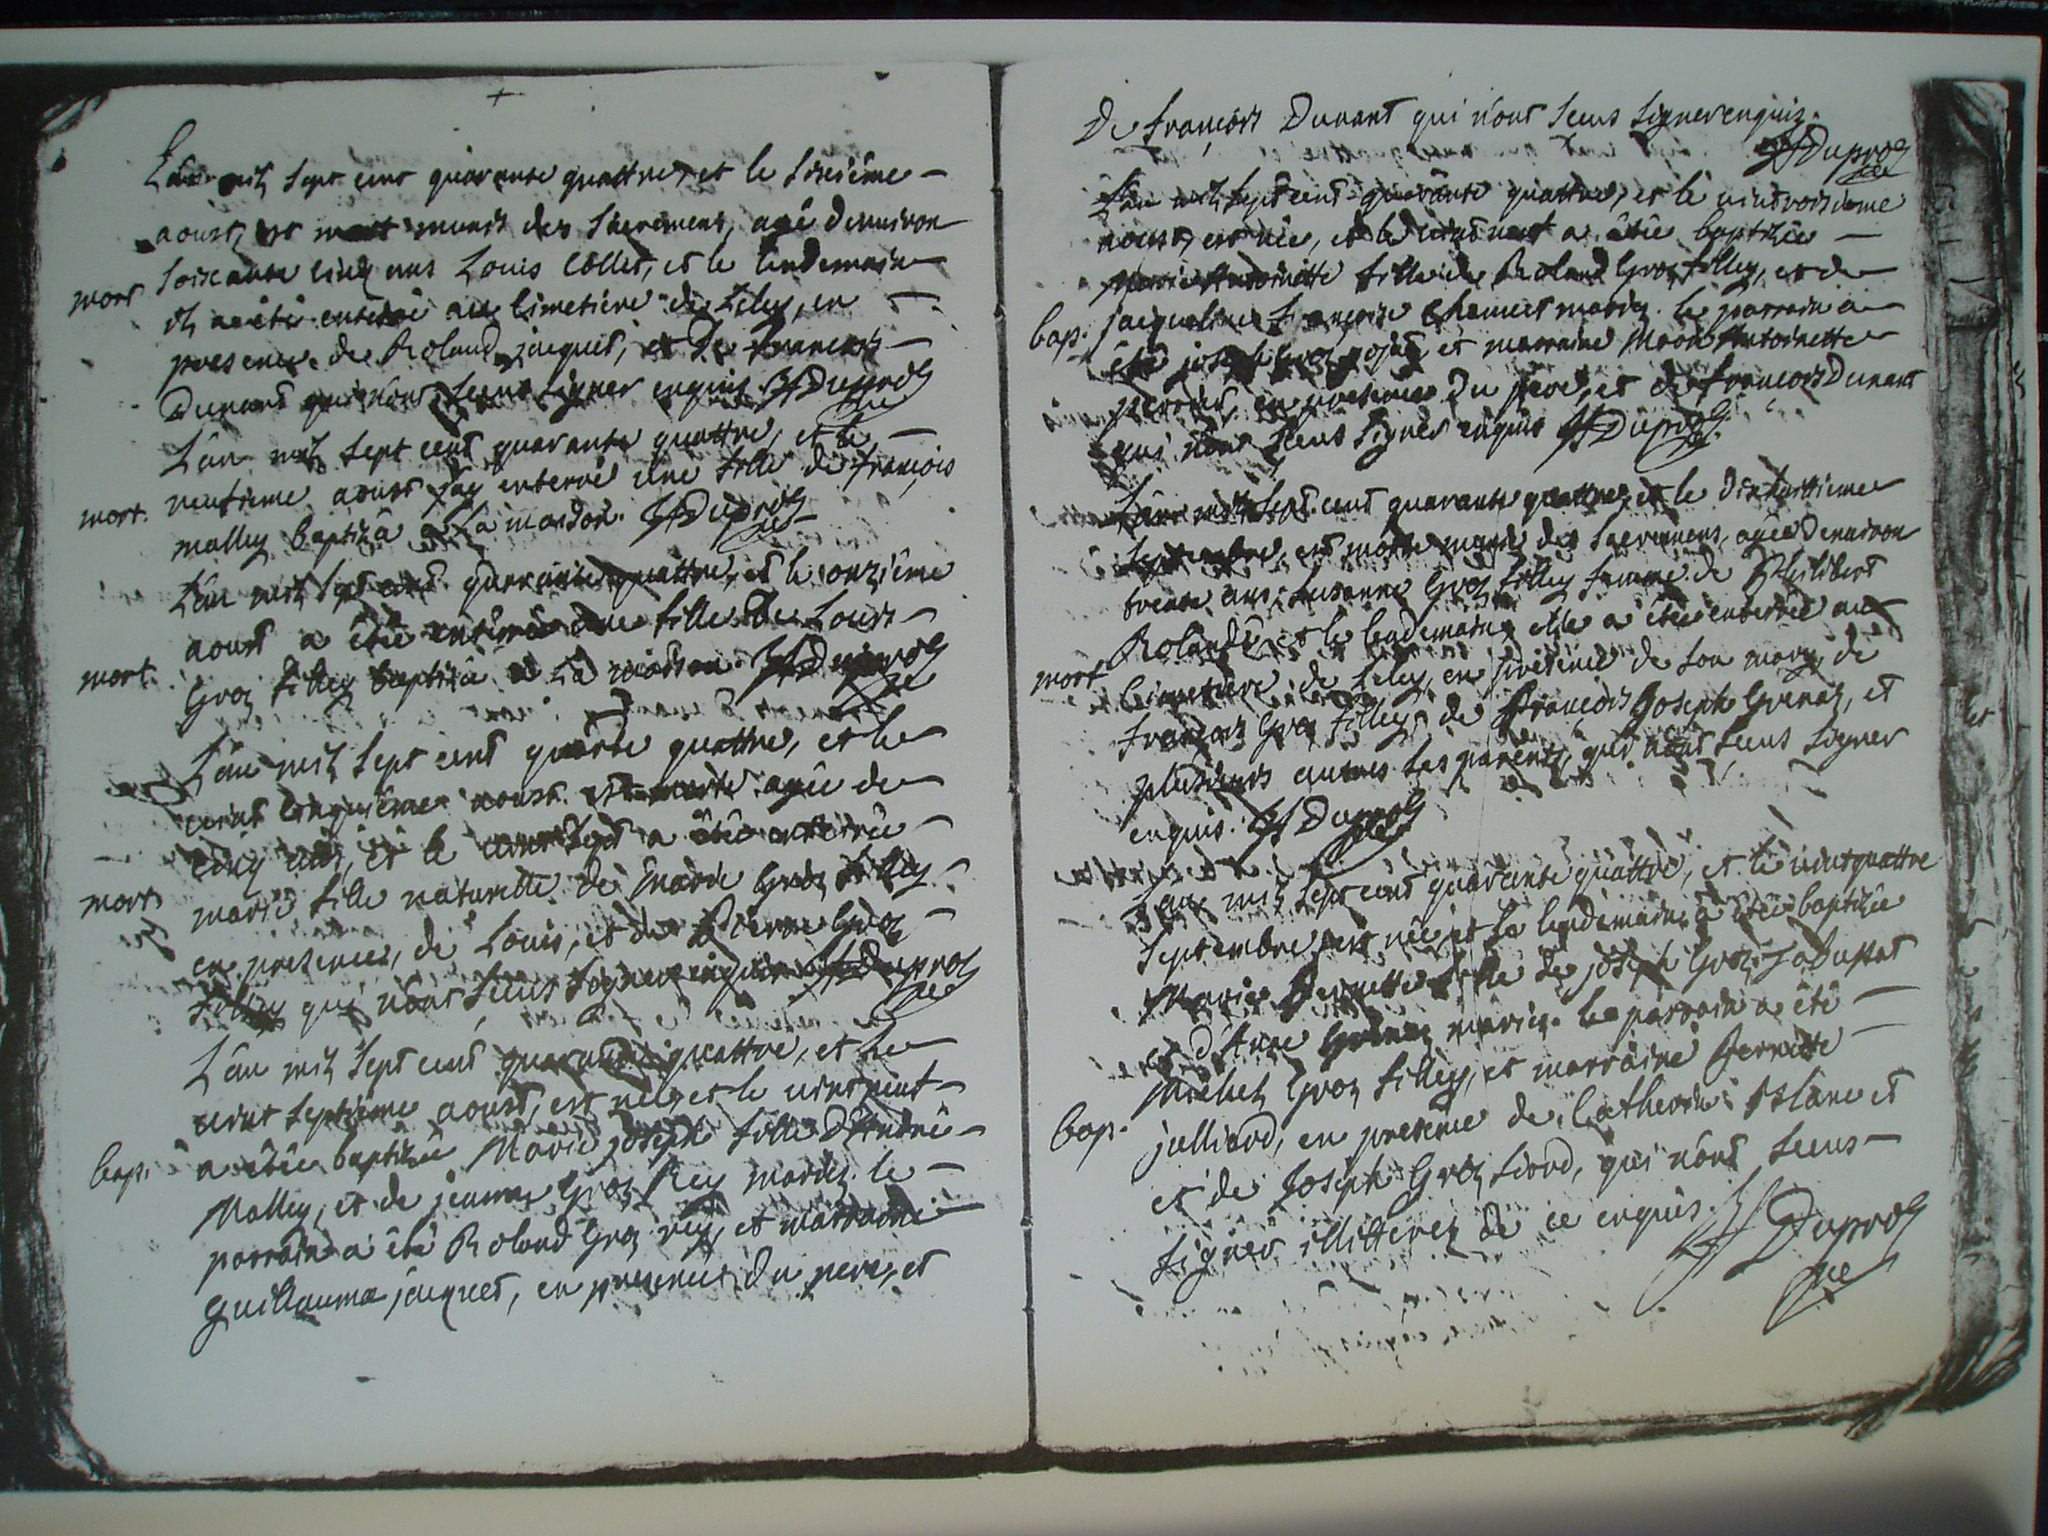 L'an mil sept cent quarante quattre, et le sixiême
aoust, est mort munis des sacrement, agê denuiron
mort soixante cinq ans Louis Collet, et le lendemain
il a êtê enterré au cimetiere de Lely, en
presence de Roland jaquet, et De francois
Dunant qui n'ont sceus signer enquis Duproz
L'an mil sept cent quarante quattre, et le
mort. neufieme aoust j'ay enterré une fille de françois
malley baptizâ a La maison. Duproz
L'an mil sept cent quarante quattre, et le onziême
aoust a êtêe enterrée une fille De Louis
mort. Groz filley baptizée a La maison Duproz
L'an mil sept cent quarte quattre, et le
vint cinquiême aoust est morte agée de
cinq ans, et le vint sept a êtêe enterrée
mort marie fille naturelle de marie Groz filley
en presence, de Louis, et de Pierre Groz
filley qui n'ont sceus signer enquis Duproz
L'an mil sept cent quarante quattre, et le
vint septiême aoust, est née, et le vint neut
bap. a êtêe baptizée Marie joseph fille d'Andrê
Malley, et de jeanne Groz Rey mariez. le
parrain a êtê Roland Groz rey, et marraine
Guillauma jaquet, en presence du pere, et
De françois Dunant qui n'ont sceus signer enquis.
Duproz
L'an mil sept cent quarante quattre, et le vint troisieme
aoust, est née, et le vint neut a êtêe baptizée
Marie Antoinette fille de Roland Groz filley, et de
bap. jacqueline françoise mariez. le parrain a
êtê joseph Groz et marraine Marie Antoinette
en presence Du pere, et de francois Dunant
qui n'ont sceus signer enquis Duproz
L'an mil sept cent quarante quattre et le dixhuittieme
septembre, est morte munie des sacremens, agée denuiron
trente ans, susanne Groz filley femme de Philibert
Roland, et le lendemain elle a êtêe enterrée au
mort cimetiere de Lely, en presence de son mary, de
francois Groz filley, de francois joseph Grenaz, et
plusieurs autres ses parents, qui n'ont sceus signer
enquis. Duproz
L'an mil sept cent quarante quattre, et le vint quattre
septembre, est née, et le lendemain a êtêe baptizée
Marie Pernette fille de joseph Groz
et d'Anne Grenaz mariez. le parrain a êtê
Michel Groz filley, et marraine Pernette
bap. julliard, en presence de Catherine Blanc et
et de joseph Groz, qui n'ont sceus
signer illitterez de ce enquis. Duproz